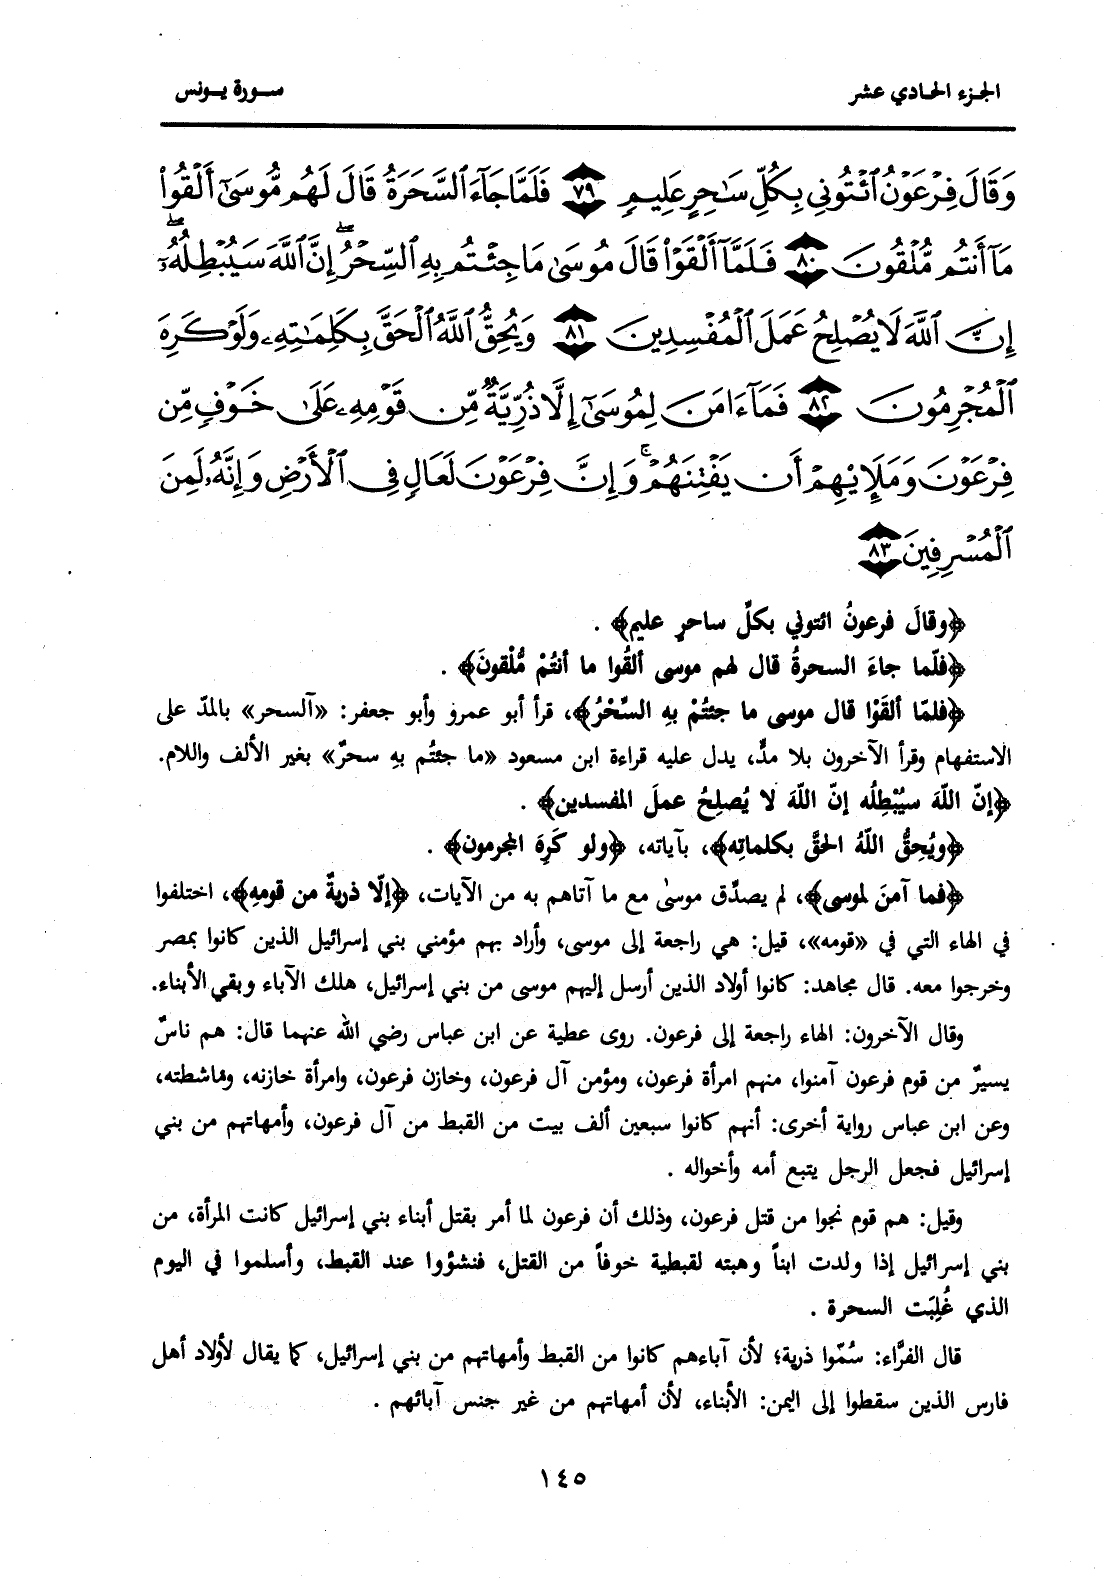 الجزء الحادي عشر
سورة يونس
وَقَالَ فِرْعَوْنُ ٱئْتُونِي بِكُلِّ سَٰحِرٍ عَلِيمٍ ٧٩ فَلَمَّا جَآءَ ٱلسَّحَرَةُ قَالَ لَهُم مُّوسَىٰٓ أَلْقُوا۟
مَآ أَنتُم مُّلْقُونَ ٨٠ فَلَمَّآ أَلْقَوْا۟ قَالَ مُوسَىٰ مَا جِئْتُم بِهِ ٱلسِّحْرُ ۖ إِنَّ ٱللَّهَ سَيُبْطِلُهُۥٓ ۖ
إِنَّ ٱللَّهَ لَا يُصْلِحُ عَمَلَ ٱلْمُفْسِدِينَ ٨١ وَيُحِقُّ ٱللَّهُ ٱلْحَقَّ بِكَلِمَٰتِهِۦ وَلَوْ كَرِهَ
ٱلْمُجْرِمُونَ ٨٢ فَمَآ ءَامَنَ لِمُوسَىٰٓ إِلَّا ذُرِّيَّةٌ مِّن قَوْمِهِۦ عَلَىٰ خَوْفٍ مِّن
فِرْعَوْنَ وَمَلَإِي۟هِمْ أَن يَفْتِنَهُمْ ۚ وَإِنَّ فِرْعَوْنَ لَعَالٍ فِى ٱلْأَرْضِ وَإِنَّهُۥ لَمِنَ
ٱلْمُسْرِفِينَ ٨٣
﴿وقالَ فرعونُ ائتوني بكلِّ ساحرٍ عليم﴾ .
﴿فلّما جاءَ السحرةُ قال لهم موسى ألقُوا ما أنتُمْ مُّلْقونَ﴾ .
﴿فلمّا ألقَوْا قال موسى ما جئتُمْ بهِ السِّحْرُ﴾، قرأ أبو عمرو وأبو جعفر: «آلسحر» بالمدّ على
الاستفهام وقرأ الآخرون بلا مدٍّ، يدل عليه قراءة ابن مسعود «ما جئتُم بهِ سحرٌ» بغير الألف واللام.
﴿إنّ اللّهَ سيُبْطِلُه إنّ اللّهَ لا يُصلِحُ عملَ المفسدين﴾ .
﴿ويُحِقُّ اللّهُ الحقَّ بكلماتِه﴾، بآياته، ﴿ولو كَرِهَ المجرمون﴾ .
﴿فما آمنَ لموسى﴾، لم يصدّق موسىٰ مع ما آتاهم به من الآيات، ﴿إلّا ذريةٌ من قومِهِ﴾، اختلفوا
في الهاء التي في «قومه»، قيل: هي راجعة إلى موسى، وأراد بهم مؤمني بني إسرائيل الذين كانوا بمصر
وخرجوا معه. قال مجاهد: كانوا أولاد الذين أرسل إليهم موسى من بني إسرائيل، هلك الآباء وبقي الأبناء.
وقال الآخرون: الهاء راجعة إلى فرعون. روى عطية عن ابن عباس رضي اللّه عنهما قال: هم ناسٌ
يسيرٌ من قوم فرعون آمنوا، منهم امرأة فرعون، ومؤمن آل فرعون، وخازن فرعون، وامرأة خازنه، وماشطته،
وعن ابن عباس رواية أخرى: أنهم كانوا سبعين ألف بيت من القبط من آل فرعون، وأمهاتهم من بني
إسرائيل فجعل الرجل يتبع أمه وأخواله .
وقيل: هم قوم نجوا من قتل فرعون، وذلك أن فرعون لما أمر بقتل أبناء بني إسرائيل كانت المرأة، من
بني إسرائيل إذا ولدت ابناً وهبته لقبطية خوفاً من القتل، فنشؤوا عند القبط، وأسلموا في اليوم
الذي غُلِبَت السحرة .
قال الفرَّاء: سُمّوا ذرية؛ لأن آباءهم كانوا من القبط وأمهاتهم من بني إسرائيل، كما يقال لأولاد أهل
فارس الذين سقطوا إلى اليمن: الأبناء، لأن أمهاتهم من غير جنس آبائهم .
١٤٥